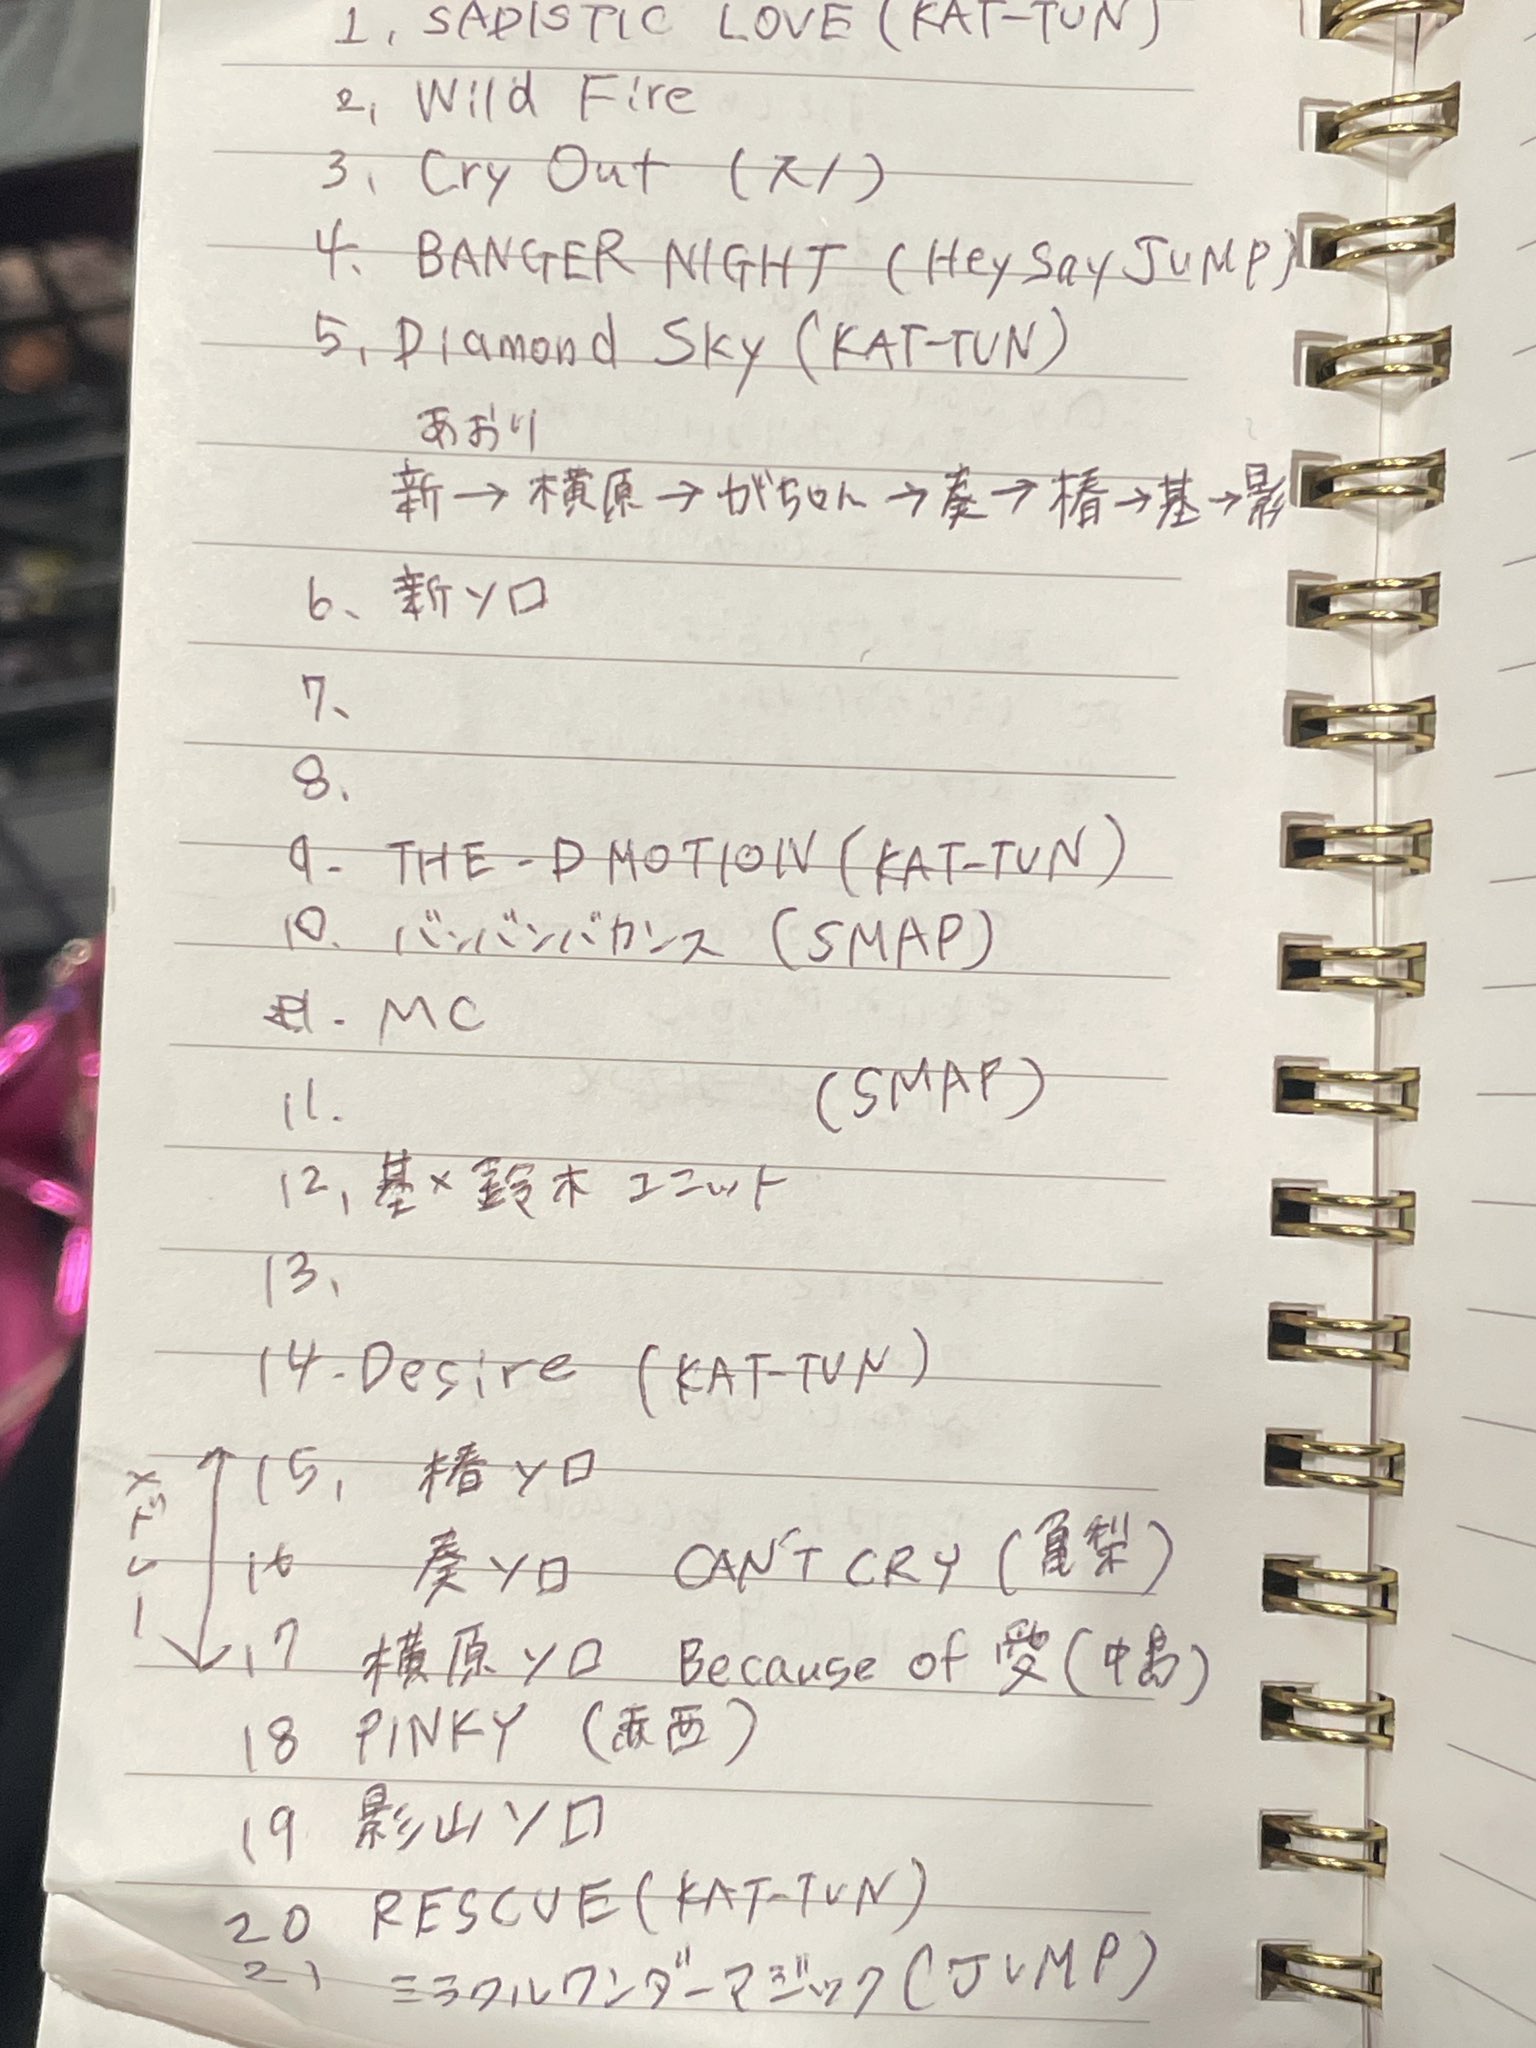 1, SADISTIC LOVE (KAT-TUN)
2, Wild Fire
3, Cry Out (スノ)
4. BANGER NIGHT (Hey Say JUMP)
5, Diamond Sky (KAT-TUN)
あおり
新→横原→がちゃん→奏→椿→基→影
6、新ソロ
7、
8.
9- THE-D MOTION (KAT-TUN)
10. バンバンバカンス (SMAP)
- MC
11. (SMAP)
12, 基×鈴木ユニット
13,
14-Desire (KAT-TUN)
メドレー
15, 椿ソロ
16 奏ソロ CAN'T CRY (亀梨)
17 横原ソロ Because of 愛 (中島)
18 PINKY (赤西)
19 影山ソロ
20 RESCUE (KAT-TUN)
21 ミラクルワンダーマジック (JUMP)